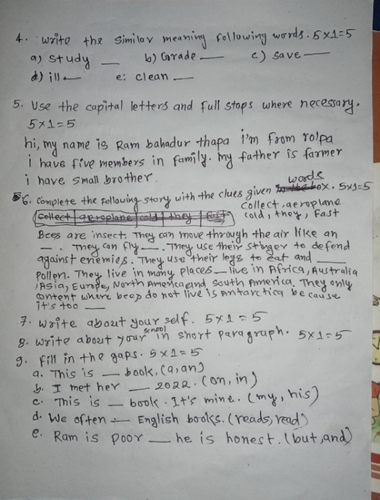 4. Write the Similar meaning following words. 5x1=5
a) Study __ b) Grade __ c) save __
d) ill __ e: clean __
5. Use the capital letters and full stops where necessary.
5x1=5
hi, my name is Ram bahadur thapa i'm from rolpa
i have five members in family. my father is farmer
i have small brother
6. Complete the following story with the clues given words box. 5x1=5
Collect aeroplane cold they fast
Collect, aeroplane
cold, they, Fast
Bees are insect. They can move through the air like an
__. They can fly __. They use their stinger to defend
against enemies. They use their legs to eat and __
pollen. They live in many places __ live in Africa, Australia
Asia, Europe, North America and South America. They only
continent where bees do not live is Antarctica because
it's too __
7. Write about your self. 5x1=5
8. Write about your school in short paragraph. 5x1=5
9. Fill in the gaps. 5x1=5
a. This is __ book. (a, an)
b. I met her __ 2022. (on, in)
c. This is __ book. It's mine. (my, his)
d. We often __ English books. (reads, read)
e. Ram is poor __ he is honest. (but, and)